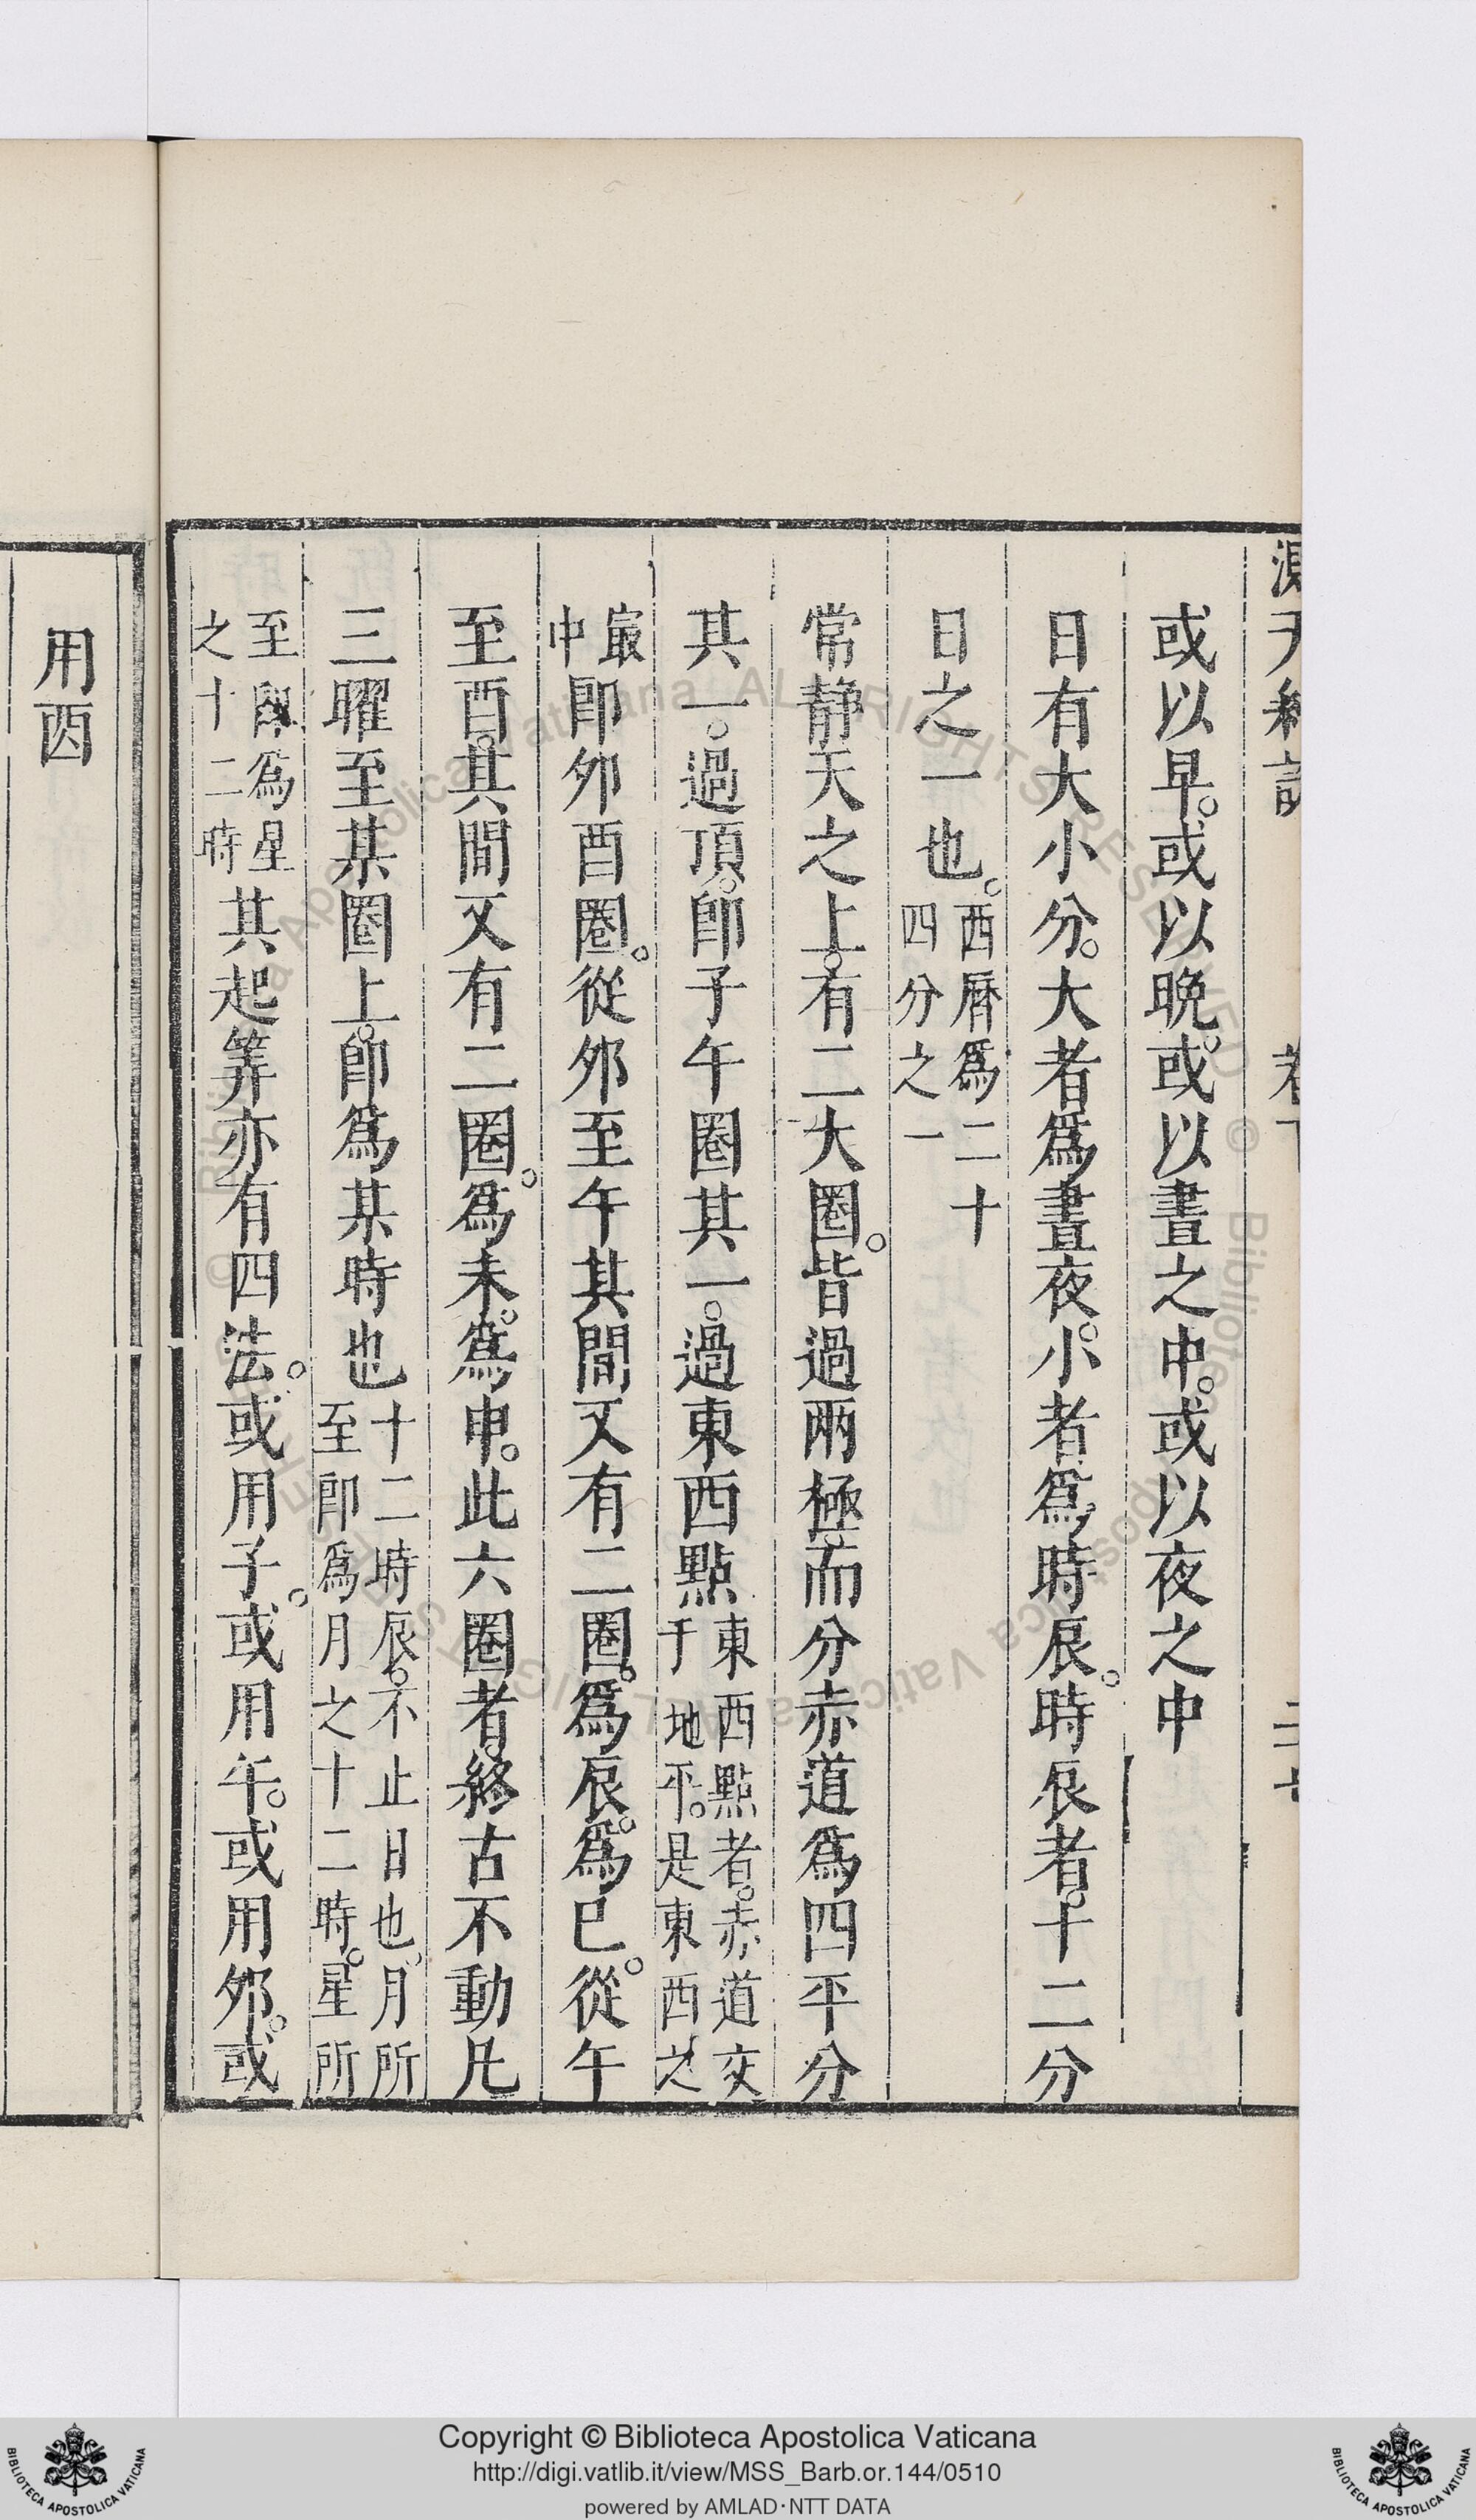 或以早。或以晩。或以晝之中。或以夜之中
日有大小分。大者爲晝夜。小者爲時辰。時辰者。十二分
日之一也。西曆爲二十四分之一
常静天之上。有二大圈。皆過兩極。而分赤道爲四平分
其一。過頂。卽子午圈其一。過東西點東西點者。赤道交于地平。是東西之
最中卽夘酉圈。從夘至午其間又有二圈。爲辰。爲巳。從午
至酉。其間又有二圈。爲未。爲申。此六圈者。終古不動凡
三曜至某圈上。卽爲某時也十二時辰。不止日也、月所至卽爲月之十二時。星所
至卽爲星之十二時其起筭亦有四法。或用子。或用午。或用夘。或
用酉
Copyright © Biblioteca Apostolica Vaticana
http://digi.vatlib.it/view/MSS_Barb.or.144/0510
powered by AMLAD·NTT DATA
BIBLIOTECA APOSTOLICA VATICANA
BIBLIOTECA APOSTOLICA VATICANA